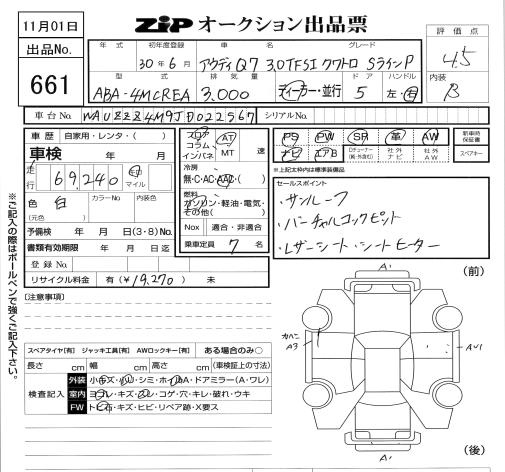 11月01日
ZIP オークション出品票
出品No.
661
評価点
4.5
内装
B
年式 初年度登録 車名 グレード
30年6月 アウディQ7 3.0TFSI クワトロ SラインP
型式 排気量 ドア ハンドル
ABA-4MCREA 3,000 ディーラー・並行 5 左・右
車台No. シリアルNo.
車歴 自家用・レンタ・( )
車検 年 月
走行 69,240 km マイル
色 白 カラーNo. 内装色
(元色)
予備検 年 月 日(3・8)No.
書類有効期限 年 月 日迄
登録No.
リサイクル料金 有(¥19,270) 未
フロア
コラム
インパネ
AT
MT 速
冷房
無・C・AC・AAC
燃料
ガソリン・軽油・電気・
その他( )
Nox 適合・非適合
乗車定員 7 名
PS PW SR 革 AW
ナビ エアB 社外ナビ 社外AW
新車時保証書
スペアキー
※上記太枠内は標準装備品
セールスポイント
・サンルーフ
・バーチャルコックピット
・レザーシート・シートヒーター
※ご記入の際はボールペンで強くご記入下さい。
[注意事項]
スペアタイヤ[有] ジャッキ工具[有] AWロックキー[有] ある場合のみ○
長さ cm 幅 cm 高さ cm (車検証上の寸法)
検査記入
外装 小キズ・ ・シミ・ A・ドアミラー(A・ワレ)
室内 ヨゴレ・キズ・ ・コゲ・穴・キレ・破れ・ウキ
FW トビ石・キズ・ヒビ・リペア跡・X要ス
(前)
A1
カハン
A3
AU1
A1
(後)